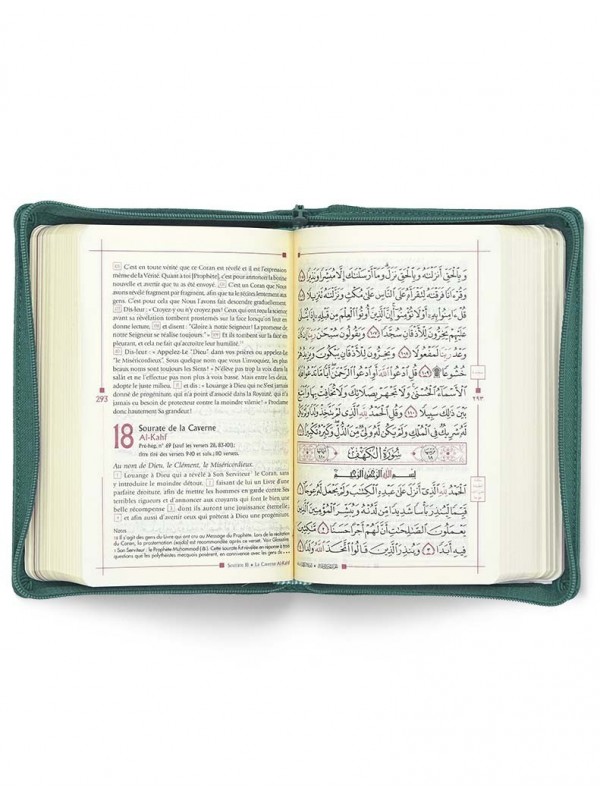 C'est en toute vérité que ce Coran est révélé et il est l'expression
même de la Vérité. Quant à toi [Prophète], c'est pour annoncer la bonne
nouvelle et avertir que tu as été envoyé. C'est un Coran que Nous
avons révélé fragment par fragment, afin que tu le récites lentement aux
gens. C'est pour cela que Nous l'avons fait descendre graduellement.
Dis-leur : « Croyez-y ou n'y croyez pas! Ceux qui ont reçu la science
avant sa révélation tombent prosternés sur la face lorsqu'on leur en
donne lecture, et disent : "Gloire à notre Seigneur! La promesse de
notre Seigneur se réalise toujours." » Et ils tombent sur la face en
pleurant, et cela ne fait qu'accroître leur humilité.
Dis-leur : « Appelez-Le "Dieu" dans vos prières ou appelez-Le
"le Miséricordieux". Sous quelque nom que vous l'invoquiez, les
plus beaux noms sont toujours les Siens. » N'élève pas trop la voix dans la
salât et ne l'effectue pas non plus à voix basse. Mais entre les deux,
adopte le juste milieu, et dis : « Louange à Dieu qui ne S'est jamais
donné de progéniture, qui n'a point d'associé dans la Royauté, qui n'a
jamais eu besoin de protecteur contre la moindre vilenie! » Proclame
donc hautement Sa grandeur!
293
18 Sourate de la Caverne
Al-Kahf
Pré-hég. n° 69 (sauf les versets 28, 83-101) ;
Au nom de Dieu, le Clément, le Miséricordieux.
Louange à Dieu qui a révélé à Son Serviteur le Coran, sans
y introduire le moindre détour, faisant de lui un Livre d'une
parfaite droiture, afin de mettre les hommes en garde contre Ses
terribles rigueurs et d'annoncer aux croyants qui font le bien une
belle récompense dont ils auront une jouissance éternelle;
et afin aussi d'avertir ceux qui prêtent à Dieu une progéniture.
SOURATE 18 • LA CAVERNE AL-KAHF
وَبِالْحَقِّ أَنزَلْنَاهُ وَبِالْحَقِّ نَزَلَ وَمَا أَرْسَلْنَاكَ إِلَّا مُبَشِّرًا وَنَذِيرًا
وَقُرْءَانًا فَرَقْنَاهُ لِتَقْرَأَهُ عَلَى النَّاسِ عَلَى مُكْثٍ وَنَزَّلْنَاهُ تَنزِيلًا
قُلْ ءَامِنُوا بِهِ أَوْ لَا تُؤْمِنُوا إِنَّ الَّذِينَ أُوتُوا الْعِلْمَ مِن قَبْلِهِ إِذَا يُتْلَى
عَلَيْهِمْ يَخِرُّونَ لِلْأَذْقَانِ سُجَّدًا ١٠٧ وَيَقُولُونَ سُبْحَانَ رَبِّنَا إِن كَانَ
وَعْدُ رَبِّنَا لَمَفْعُولًا ١٠٨ وَيَخِرُّونَ لِلْأَذْقَانِ يَبْكُونَ وَيَزِيدُهُمْ
خُشُوعًا ١٠٩ قُلِ ادْعُوا اللَّهَ أَوِ ادْعُوا الرَّحْمَنَ أَيًّا مَّا تَدْعُوا فَلَهُ
الْأَسْمَاءُ الْحُسْنَى وَلَا تَجْهَرْ بِصَلَاتِكَ وَلَا تُخَافِتْ بِهَا وَابْتَغِ
بَيْنَ ذَلِكَ سَبِيلًا ١١٠ وَقُلِ الْحَمْدُ لِلَّهِ الَّذِي لَمْ يَتَّخِذْ وَلَدًا وَلَمْ يَكُن
لَّهُ شَرِيكٌ فِي الْمُلْكِ وَلَمْ يَكُن لَّهُ وَلِيٌّ مِّنَ الذُّلِّ وَكَبِّرْهُ تَكْبِيرًا
٢٩٣
سُورَةُ الْكَهْفِ
بِسْمِ اللَّهِ الرَّحْمَنِ الرَّحِيمِ
الْحَمْدُ لِلَّهِ الَّذِي أَنزَلَ عَلَى عَبْدِهِ الْكِتَابَ وَلَمْ يَجْعَل لَّهُ عِوَجَا
قَيِّمًا لِّيُنذِرَ بَأْسًا شَدِيدًا مِّن لَّدُنْهُ وَيُبَشِّرَ الْمُؤْمِنِينَ الَّذِينَ
يَعْمَلُونَ الصَّالِحَاتِ أَنَّ لَهُمْ أَجْرًا حَسَنًا ٢ مَّاكِثِينَ
فِيهِ أَبَدًا ٣ وَيُنذِرَ الَّذِينَ قَالُوا اتَّخَذَ اللَّهُ وَلَدًا